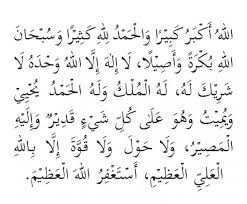 اَللهُ أَكْبَرُ كَبِيْرًا وَالْحَمْدُ لِلّٰهِ كَثِيْرًا وَسُبْحَانَ
اللهِ بُكْرَةً وَأَصِيْلًا، لَا إِلٰهَ إِلَّا اللهُ وَحْدَهُ لَا
شَرِيْكَ لَهُ، لَهُ الْمُلْكُ وَلَهُ الْحَمْدُ يُحْيِيْ
وَيُمِيْتُ وَهُوَ عَلٰى كُلِّ شَيْءٍ قَدِيْرٌ وَإِلَيْهِ
الْمَصِيْرُ، وَلَا حَوْلَ وَلَا قُوَّةَ إِلَّا بِاللهِ
الْعَلِيِّ الْعَظِيْمِ، أَسْتَغْفِرُ اللهَ الْعَظِيْمَ.